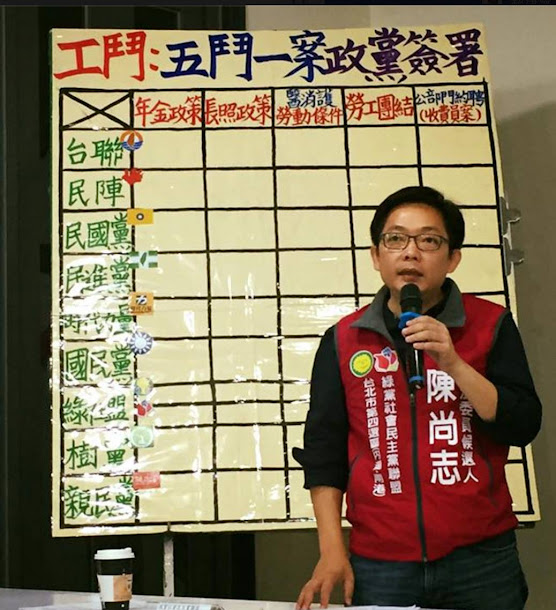 工鬥:五鬥一案政黨簽署
年金政策
長照政策
醫消護
勞動條件
勞工團結
公部門約聘
(收費員案)
台聯
民陣
民國黨
民進黨
時代
國民黨
綠
盟
樹黨
親民黨
委員候選人
陳尚志
綠黨社會民主黨聯盟
台北市第四選區